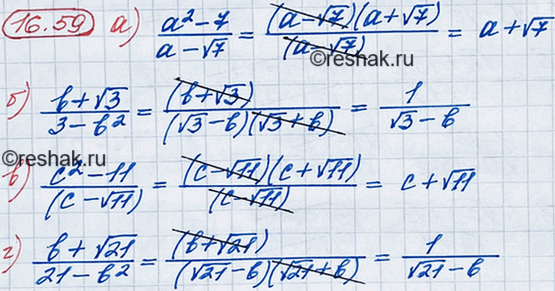 16.59 а) (a² - 7)/(a - √7) = ((a - √7)(a + √7))/(a - √7) = a + √7
©reshak.ru
б) (b + √3)/(3 - b²) = (b + √3)/((√3 - b)(√3 + b)) = 1/(√3 - b)
©reshak.ru
в) (c² - 11)/(c - √11) = ((c - √11)(c + √11))/(c - √11) = c + √11
г) (b + √21)/(21 - b²) = (b + √21)/((√21 - b)(√21 + b)) = 1/(√21 - b)
©reshak.ru